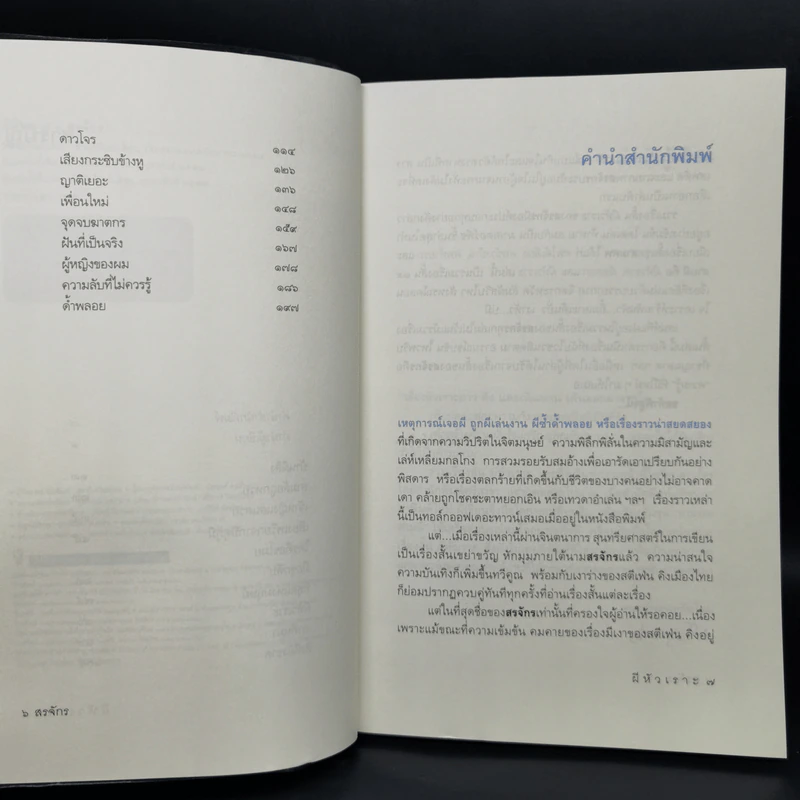 ดาวโจร ๑๑๔
เสียงกระซิบข้างหู ๑๒๖
ญาติเยอะ ๑๓๖
เพื่อนใหม่ ๑๔๘
จุดจบฆาตกร ๑๕๙
ฝันที่เป็นจริง ๑๖๗
ผู้หญิงของผม ๑๗๘
ความลับที่ไม่ควรรู้ ๑๘๖
ด้ำพลอย ๑๙๗
๖ สรจักร
คำนำสำนักพิมพ์
เหตุการณ์เจอผี ถูกผีเล่นงาน ผีซ้ำด้ำพลอย หรือเรื่องราวน่าสยดสยอง
ที่เกิดจากความวิปริตในจิตมนุษย์ ความพิลึกพิลั่นในความมิสามัญและ
เล่ห์เหลี่ยมกลโกง การสวมรอยรับสมอ้างเพื่อเอารัดเอาเปรียบกันอย่าง
พิสดาร หรือเรื่องตลกร้ายที่เกิดขึ้นกับชีวิตของบางคนอย่างไม่อาจคาด
เดา คล้ายถูกโชคชะตาหยอกเอิน หรือเทวดาอำเล่น ฯลฯ เรื่องราวเหล่า
นี้เป็นทอล์กออฟเดอะทาวน์เสมอเมื่ออยู่ในหนังสือพิมพ์
แต่...เมื่อเรื่องเหล่านี้ผ่านจินตนาการ สุนทรียศาสตร์ในการเขียน
เป็นเรื่องสั้นเขย่าขวัญ หักมุมภายใต้นามสรจักรแล้ว ความน่าสนใจ
ความบันเทิงก็เพิ่มขึ้นทวีคูณ พร้อมกับเงาร่างของสตีเฟน คิงเมืองไทย
ก็ย่อมปรากฏควบคู่ทันทีทุกครั้งที่อ่านเรื่องสั้นแต่ละเรื่อง
แต่ในที่สุดชื่อของสรจักรเท่านั้นที่ครองใจผู้อ่านให้รอคอย...เนื่อง
เพราะแม้ขณะที่ความเข้มข้น คมคายของเรื่องมีเงาของสตีเฟน คิงอยู่
ผีหัวเราะ ๗